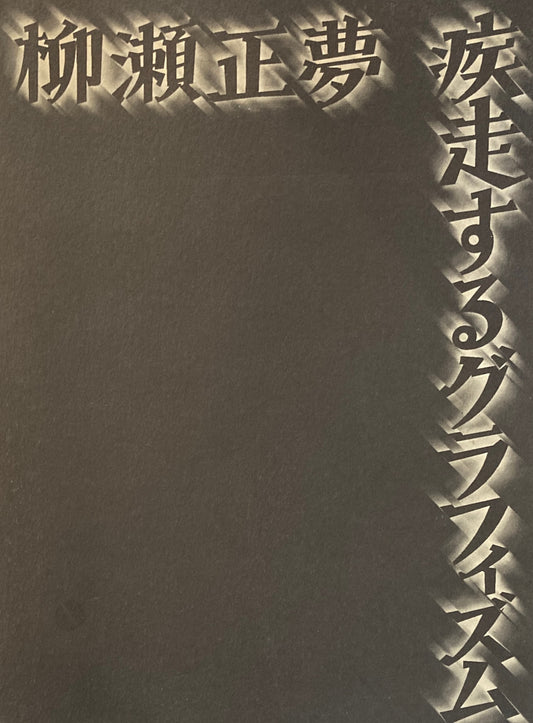 柳瀬正夢
疾走するグラフィズム